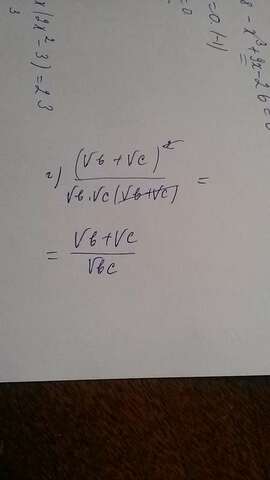 8 - x³ + 9x - 26 = 0
x(2x² - 3) = 23
3
г) (√b + √c)² / √b·√c(√b+√c) =
= √b + √c / √bc